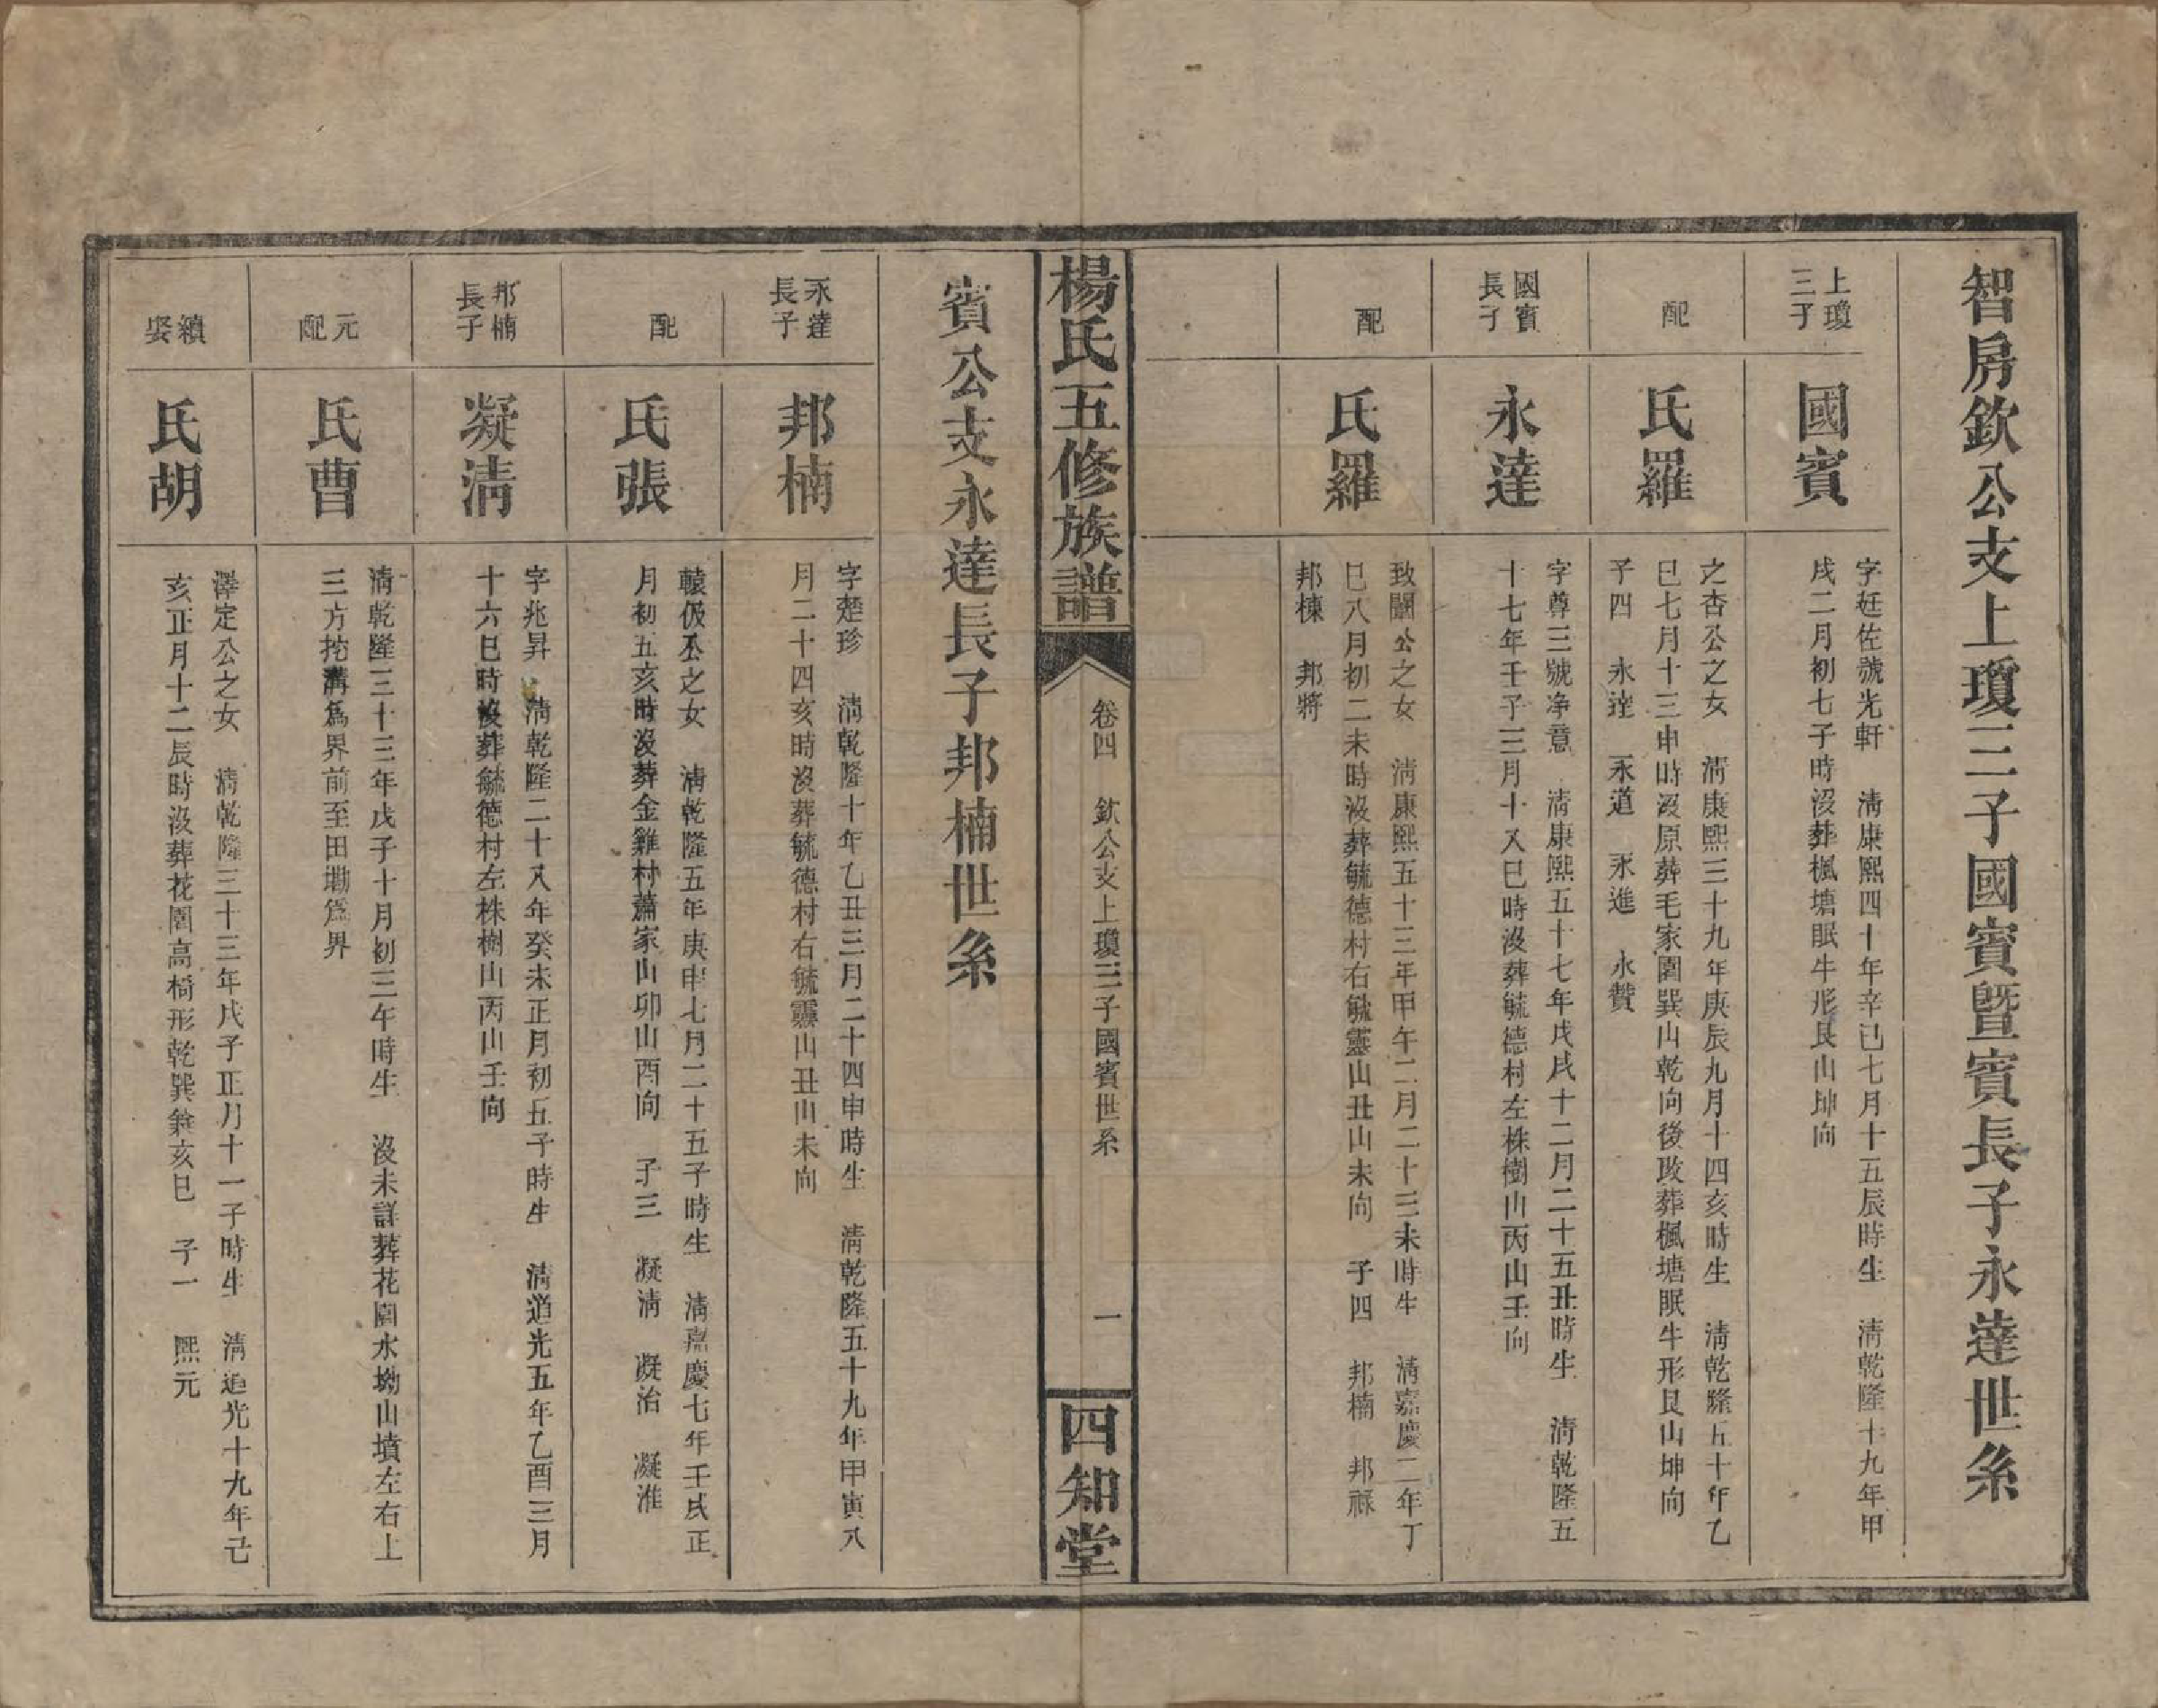 智房欽公支上瓊三子國賓曁賓長子永達世系
上瓊
三子
國賓
字廷佐號光軒　淸康熙四十年辛巳七月十五辰時生　淸乾隆十九年甲
戌二月初七子時沒葬楓塘眠牛形艮山坤向
配
氏羅
之杏公之女　淸康熙三十九年庚辰九月十四亥時生　淸乾隆五十年乙
巳七月十三申時沒原葬毛家園巽山乾向後改葬楓塘眠牛形艮山坤向
子四　永達　永道　永進　永贊
國賓
長子
永達
字尊三號净意　淸康熙五十七年戊戌十二月二十五丑時生　淸乾隆五
十七年壬子三月十八巳時沒葬毓德村左株樹山丙山壬向
配
氏羅
致關公之女　淸康熙五十三年甲午二月二十三未時生　淸嘉慶二年丁
巳八月初二未時沒葬毓德村右毓靈山丑山未向　子四　邦楠　邦祿
邦棟　邦將
楊氏五修族譜
卷四　欽公支上瓊三子國賓世系
一
四知堂
賓公支永達長子邦楠世系
永達
長子
邦楠
字楚珍　淸乾隆十年乙丑三月二十四申時生　淸乾隆五十九年甲寅八
月二十四亥時沒葬毓德村右毓靈山丑山未向
配
氏張
轅伋公之女　淸乾隆五年庚申七月二十五子時生　淸嘉慶七年壬戌正
月初五亥時沒葬金雞村蕭家山卯山酉向　子三　凝淸　凝治　凝淮
邦楠
長子
凝淸
字兆昇　淸乾隆二十八年癸未正月初五子時生　淸道光五年乙酉三月
十六巳時沒葬毓德村左株樹山丙山壬向
元
配
氏曹
淸乾隆三十三年戊子十月初三午時生　沒未詳葬花園水坳山墳左右上
三方挖溝爲界前至田塝爲界
續
娶
氏胡
澤定公之女　淸乾隆三十三年戊子正月十一子時生　淸道光十九年己
亥正月十二辰時沒葬花園高椅形乾巽兼亥巳　子一　熙元